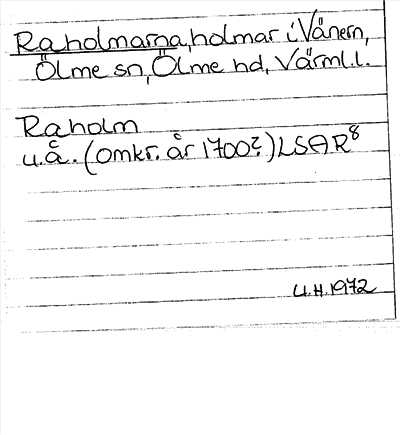 Raholmarna, holmar i Vänern,
Ölme sn, Ölme hd, Värml.l.
Raholm
u.å. (omkr. år 1700?) LSAR⁸
U.H. 1972